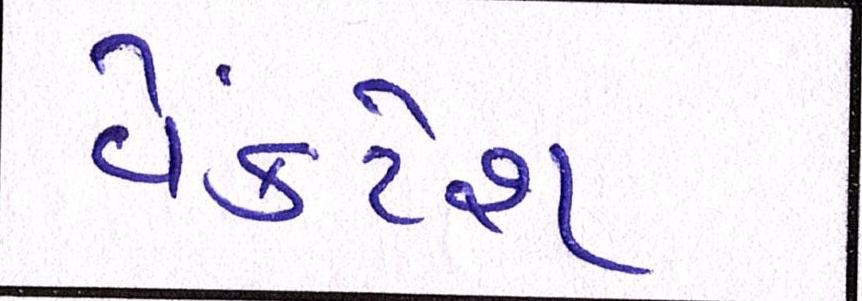 વેંકટેશ